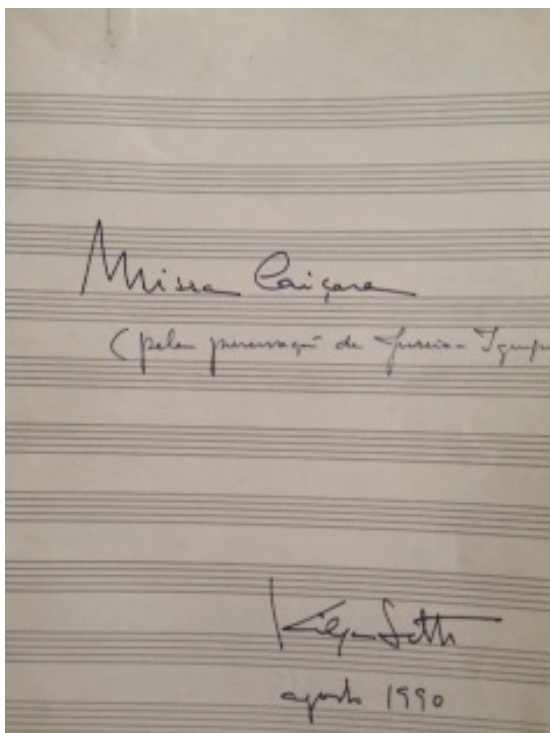 Missa Caiçara
(pela preservação da Jureia-
Kilza Setti
agosto 1990